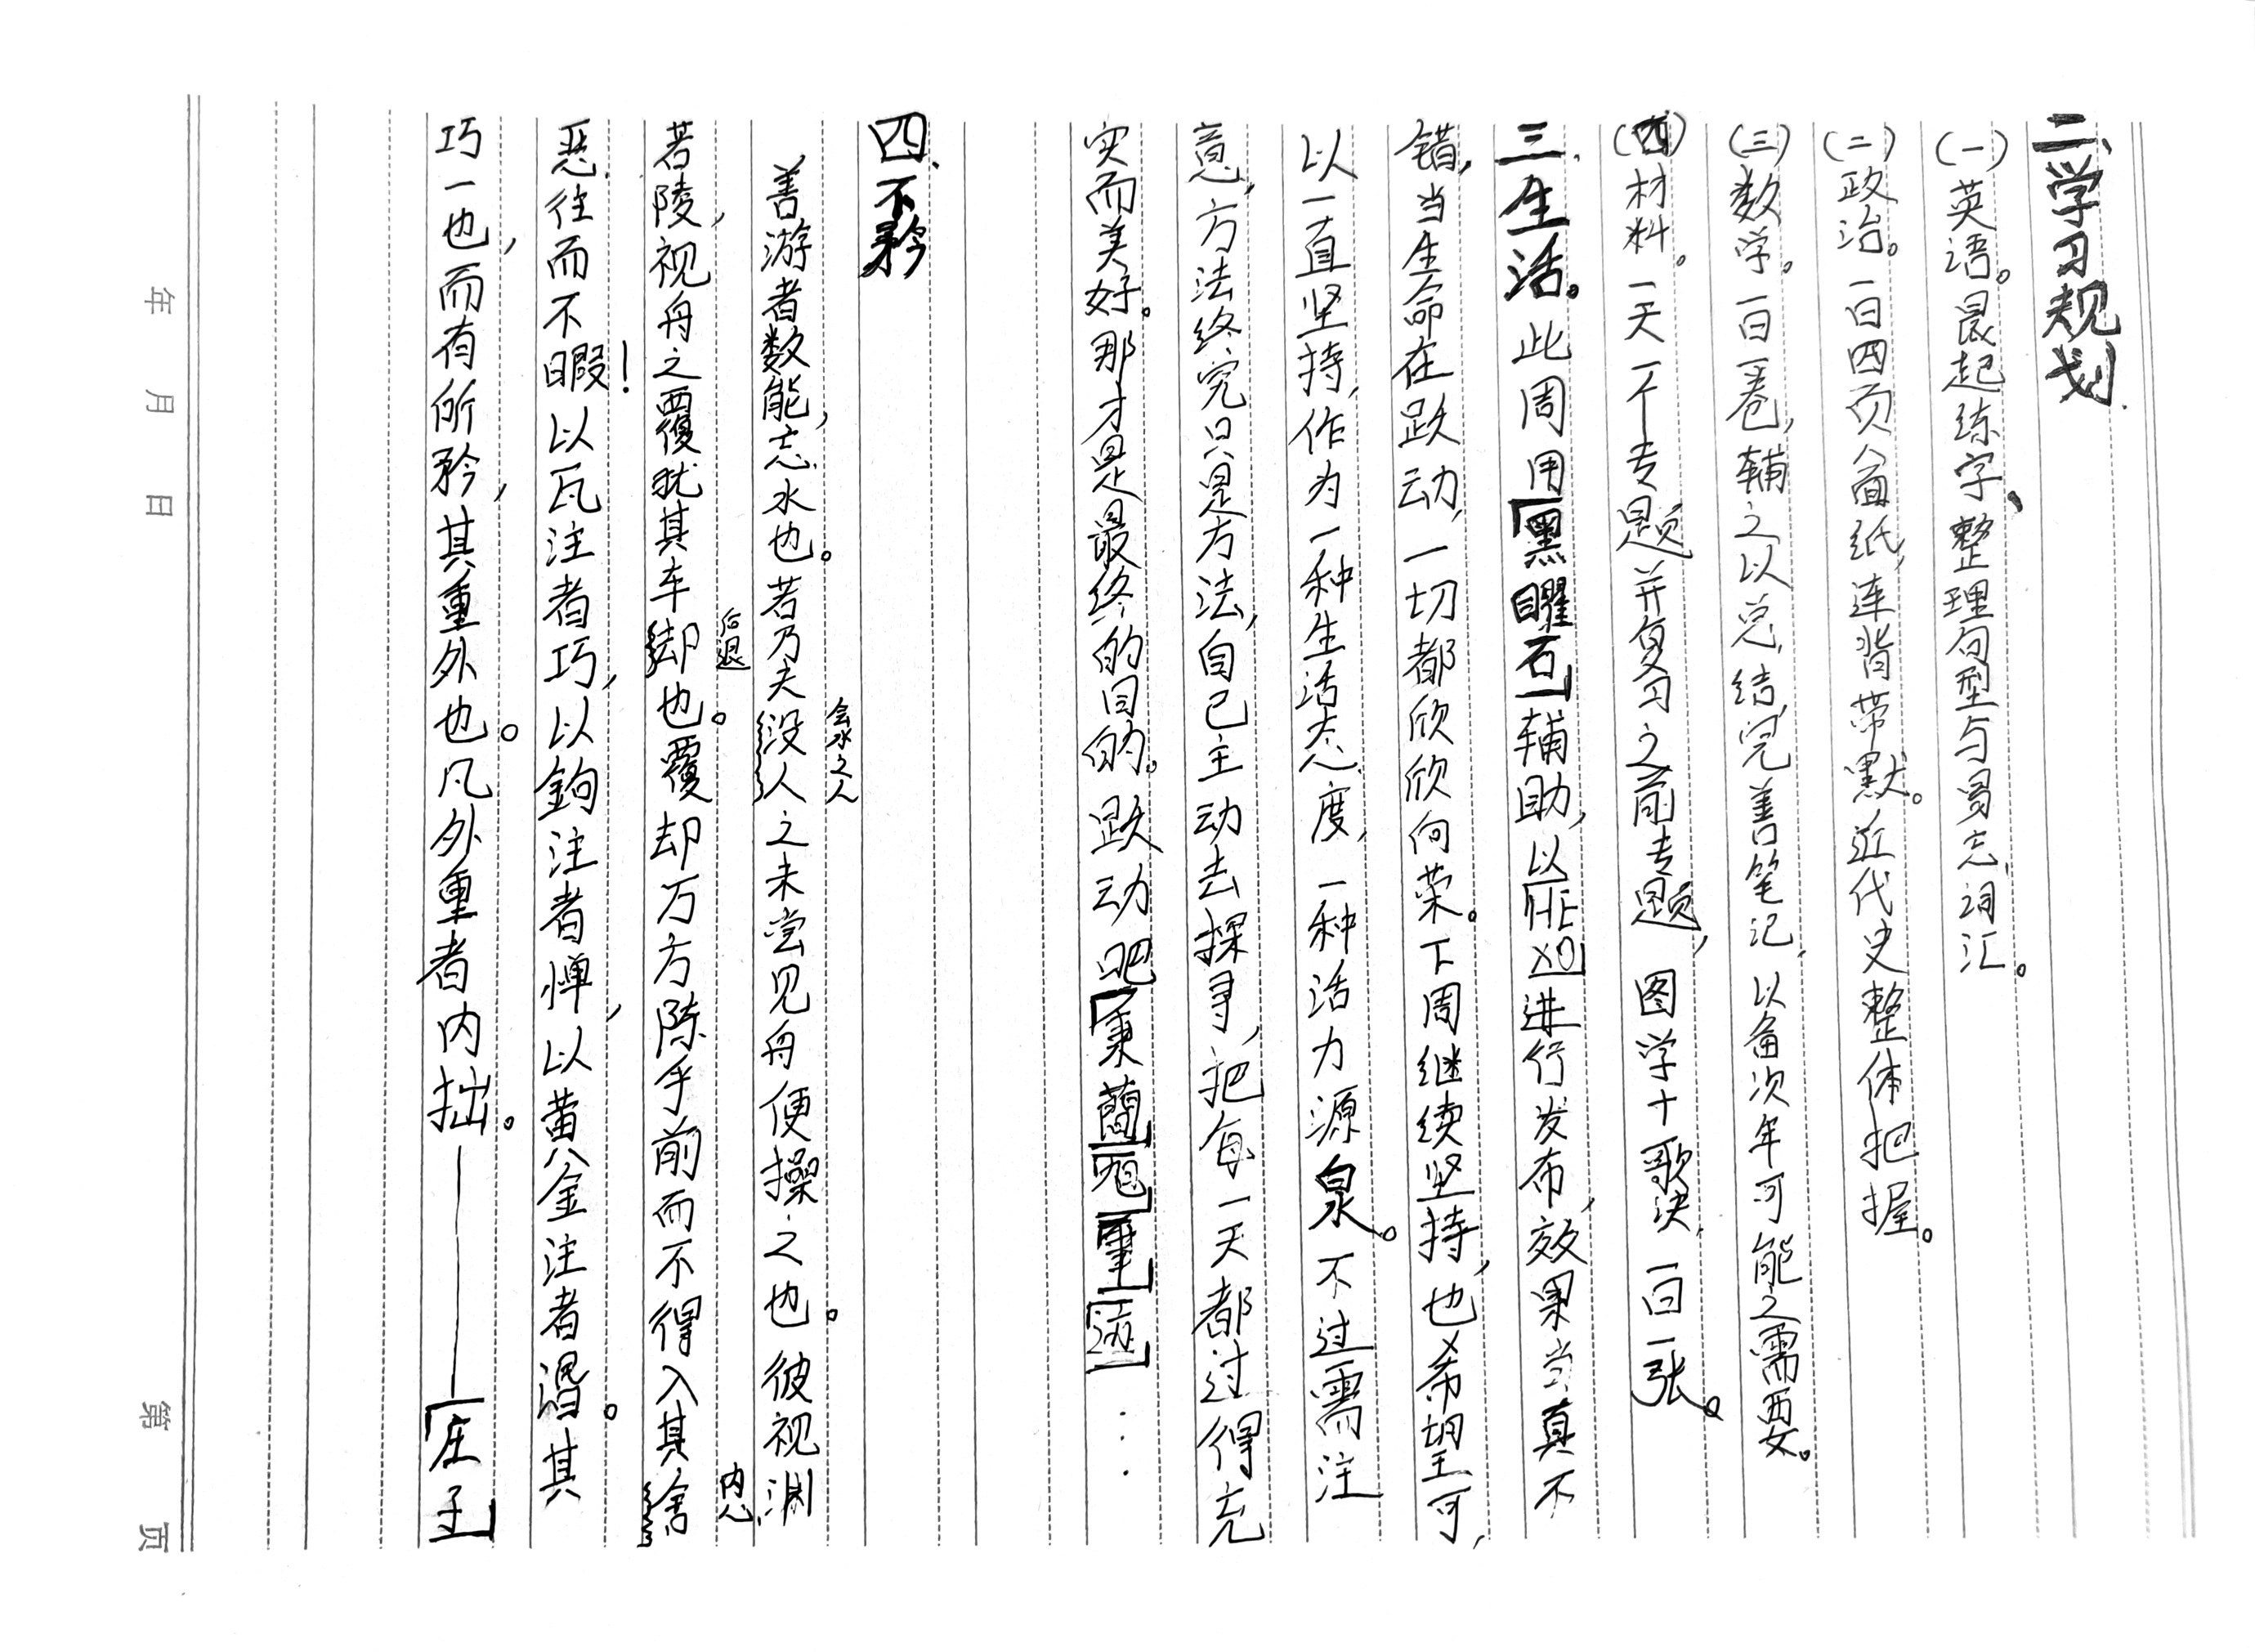 二、学习规划.
(一)英语。晨起练字、整理句型与易忘词汇。
(二)政治。一日四页八面纸,连背带默。近代史整体把握。
(三)数学。一日一卷,辅之以总结,完善笔记,以备次年可能之需要。
(四)材料。一天一个专题并复习之前专题,图学十歌诀,一日一张。
三.生活。此周用「黑曜石」辅助,以进行发布,效果当真不
错,当生命在跃动,一切都欣欣向荣。下周继续坚持,也希望可,
以一直坚持,作为一种生活态度,一种活力源泉。不过需注
意,方法终究只是方法,自己主动去探寻,把每一天都过得充
实而美好。那才是最终的目的。跃动吧
四.不矜
善游者数能,忘水也。若乃夫没人之未尝见舟便操之也。彼视渊
会水之人
若陵,视舟之覆犹其车却也。覆却万方陈乎前而不得入其舍
后退
内心
恶往而不暇!以瓦注者巧,以鉤注者惮,以黄金注者涽。其
巧一也,而有所矜,其重外也。凡外重者内拙。——「庄子」
年 月 日
第 页